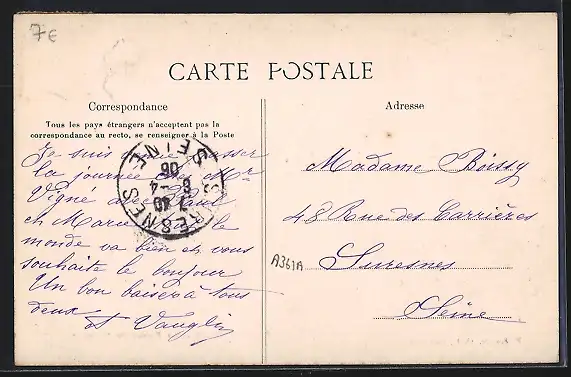 7€
CARTE POSTALE
Correspondance
Tous les pays étrangers n'acceptent pas la
correspondance au recto, se renseigner à la Poste
Adresse
Je suis venue passer
la journée chez Mr
Vigné avec Paul
et Marie tout le
monde va bien et vous
souhaite le bonjour
Un bon baiser à tous
deux
Vauglin
SURESNES
SEINE
7 40
8 - 4
06
Madame Boissy
48 Rue des Carrières
Suresnes
Seine
A361A